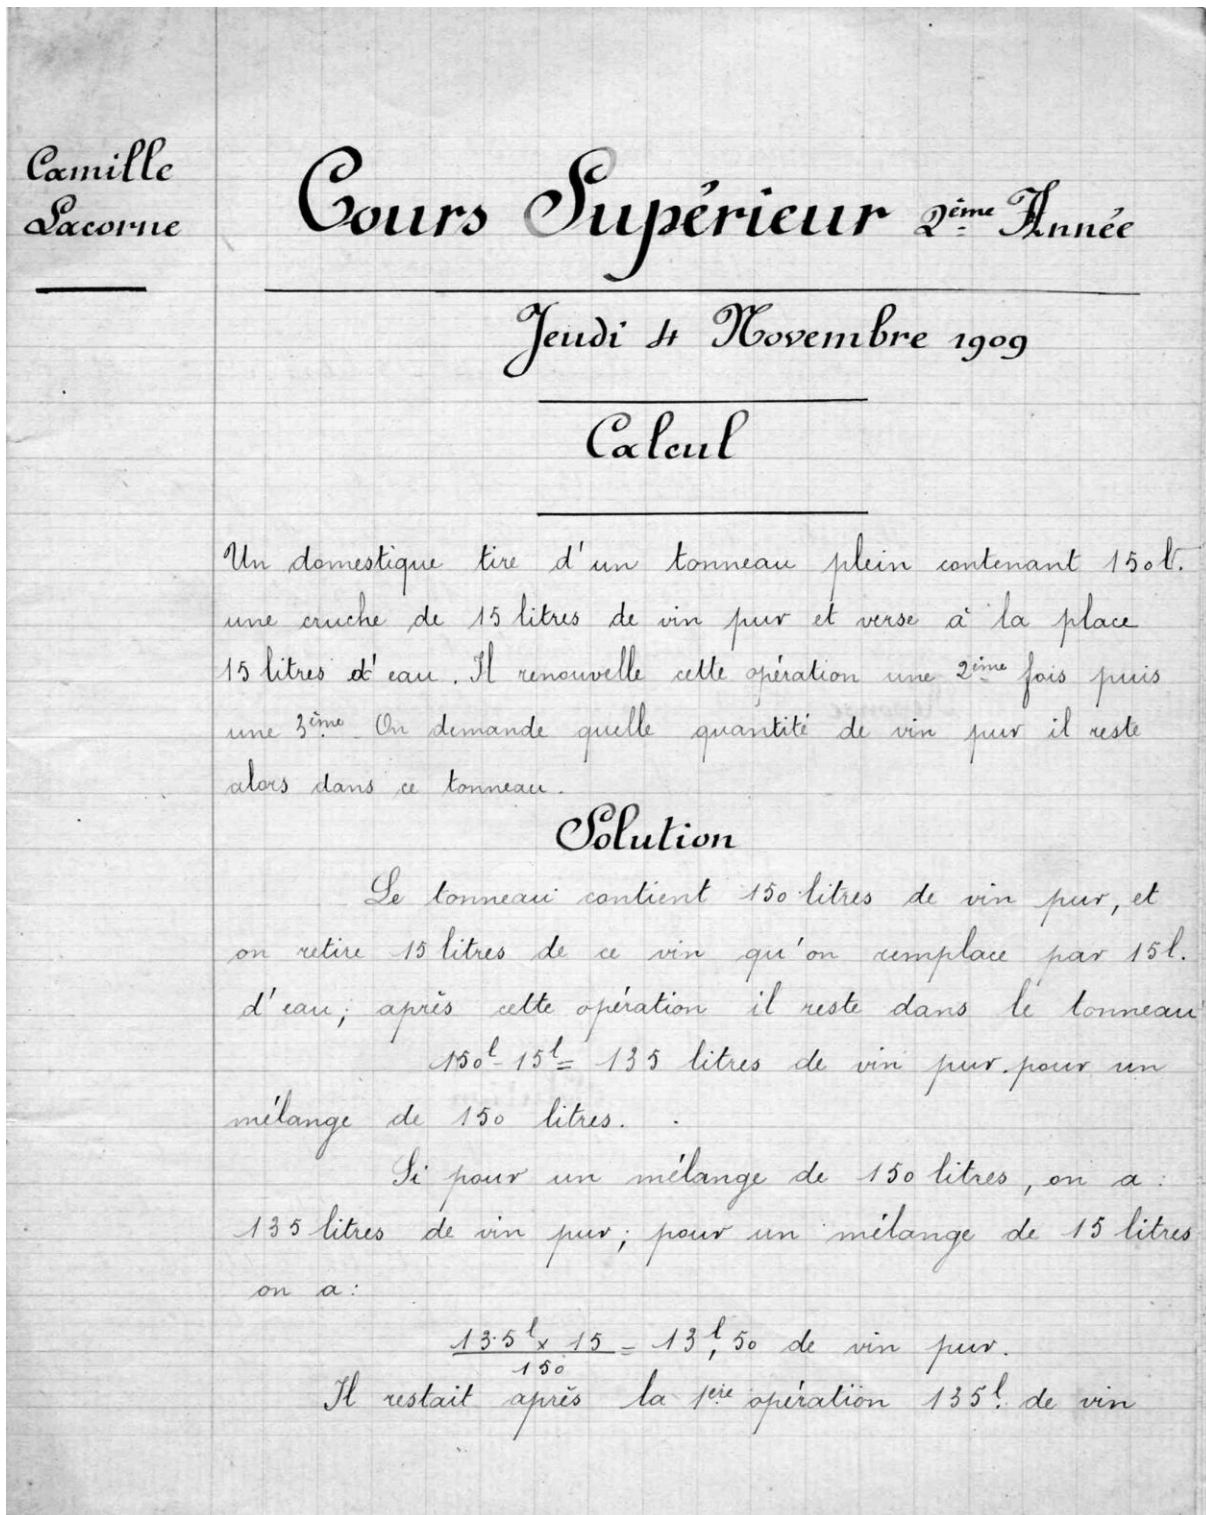 Camille
Lacorne
Cours Supérieur 2ème Année
Jeudi 4 Novembre 1909
Calcul
Un domestique tire d'un tonneau plein contenant 150lt.
une cruche de 15 litres de vin pur et verse à la place
15 litres d'eau. Il renouvelle cette opération une 2ème fois puis
une 3ème On demande quelle quantité de vin pur il reste
alors dans ce tonneau.
Solution
Le tonneau contient 150 litres de vin pur, et
on retire 15 litres de ce vin qu'on remplace par 15l.
d'eau; après cette opération il reste dans le tonneau
150l - 15l = 135 litres de vin pur. pour un
mélange de 150 litres.
Si pour un mélange de 150 litres, on a :
135 litres de vin pur; pour un mélange de 15 litres
on a :
135l x 15 / 150 = 13l,50 de vin pur.
Il restait après la 1ère opération 135l. de vin